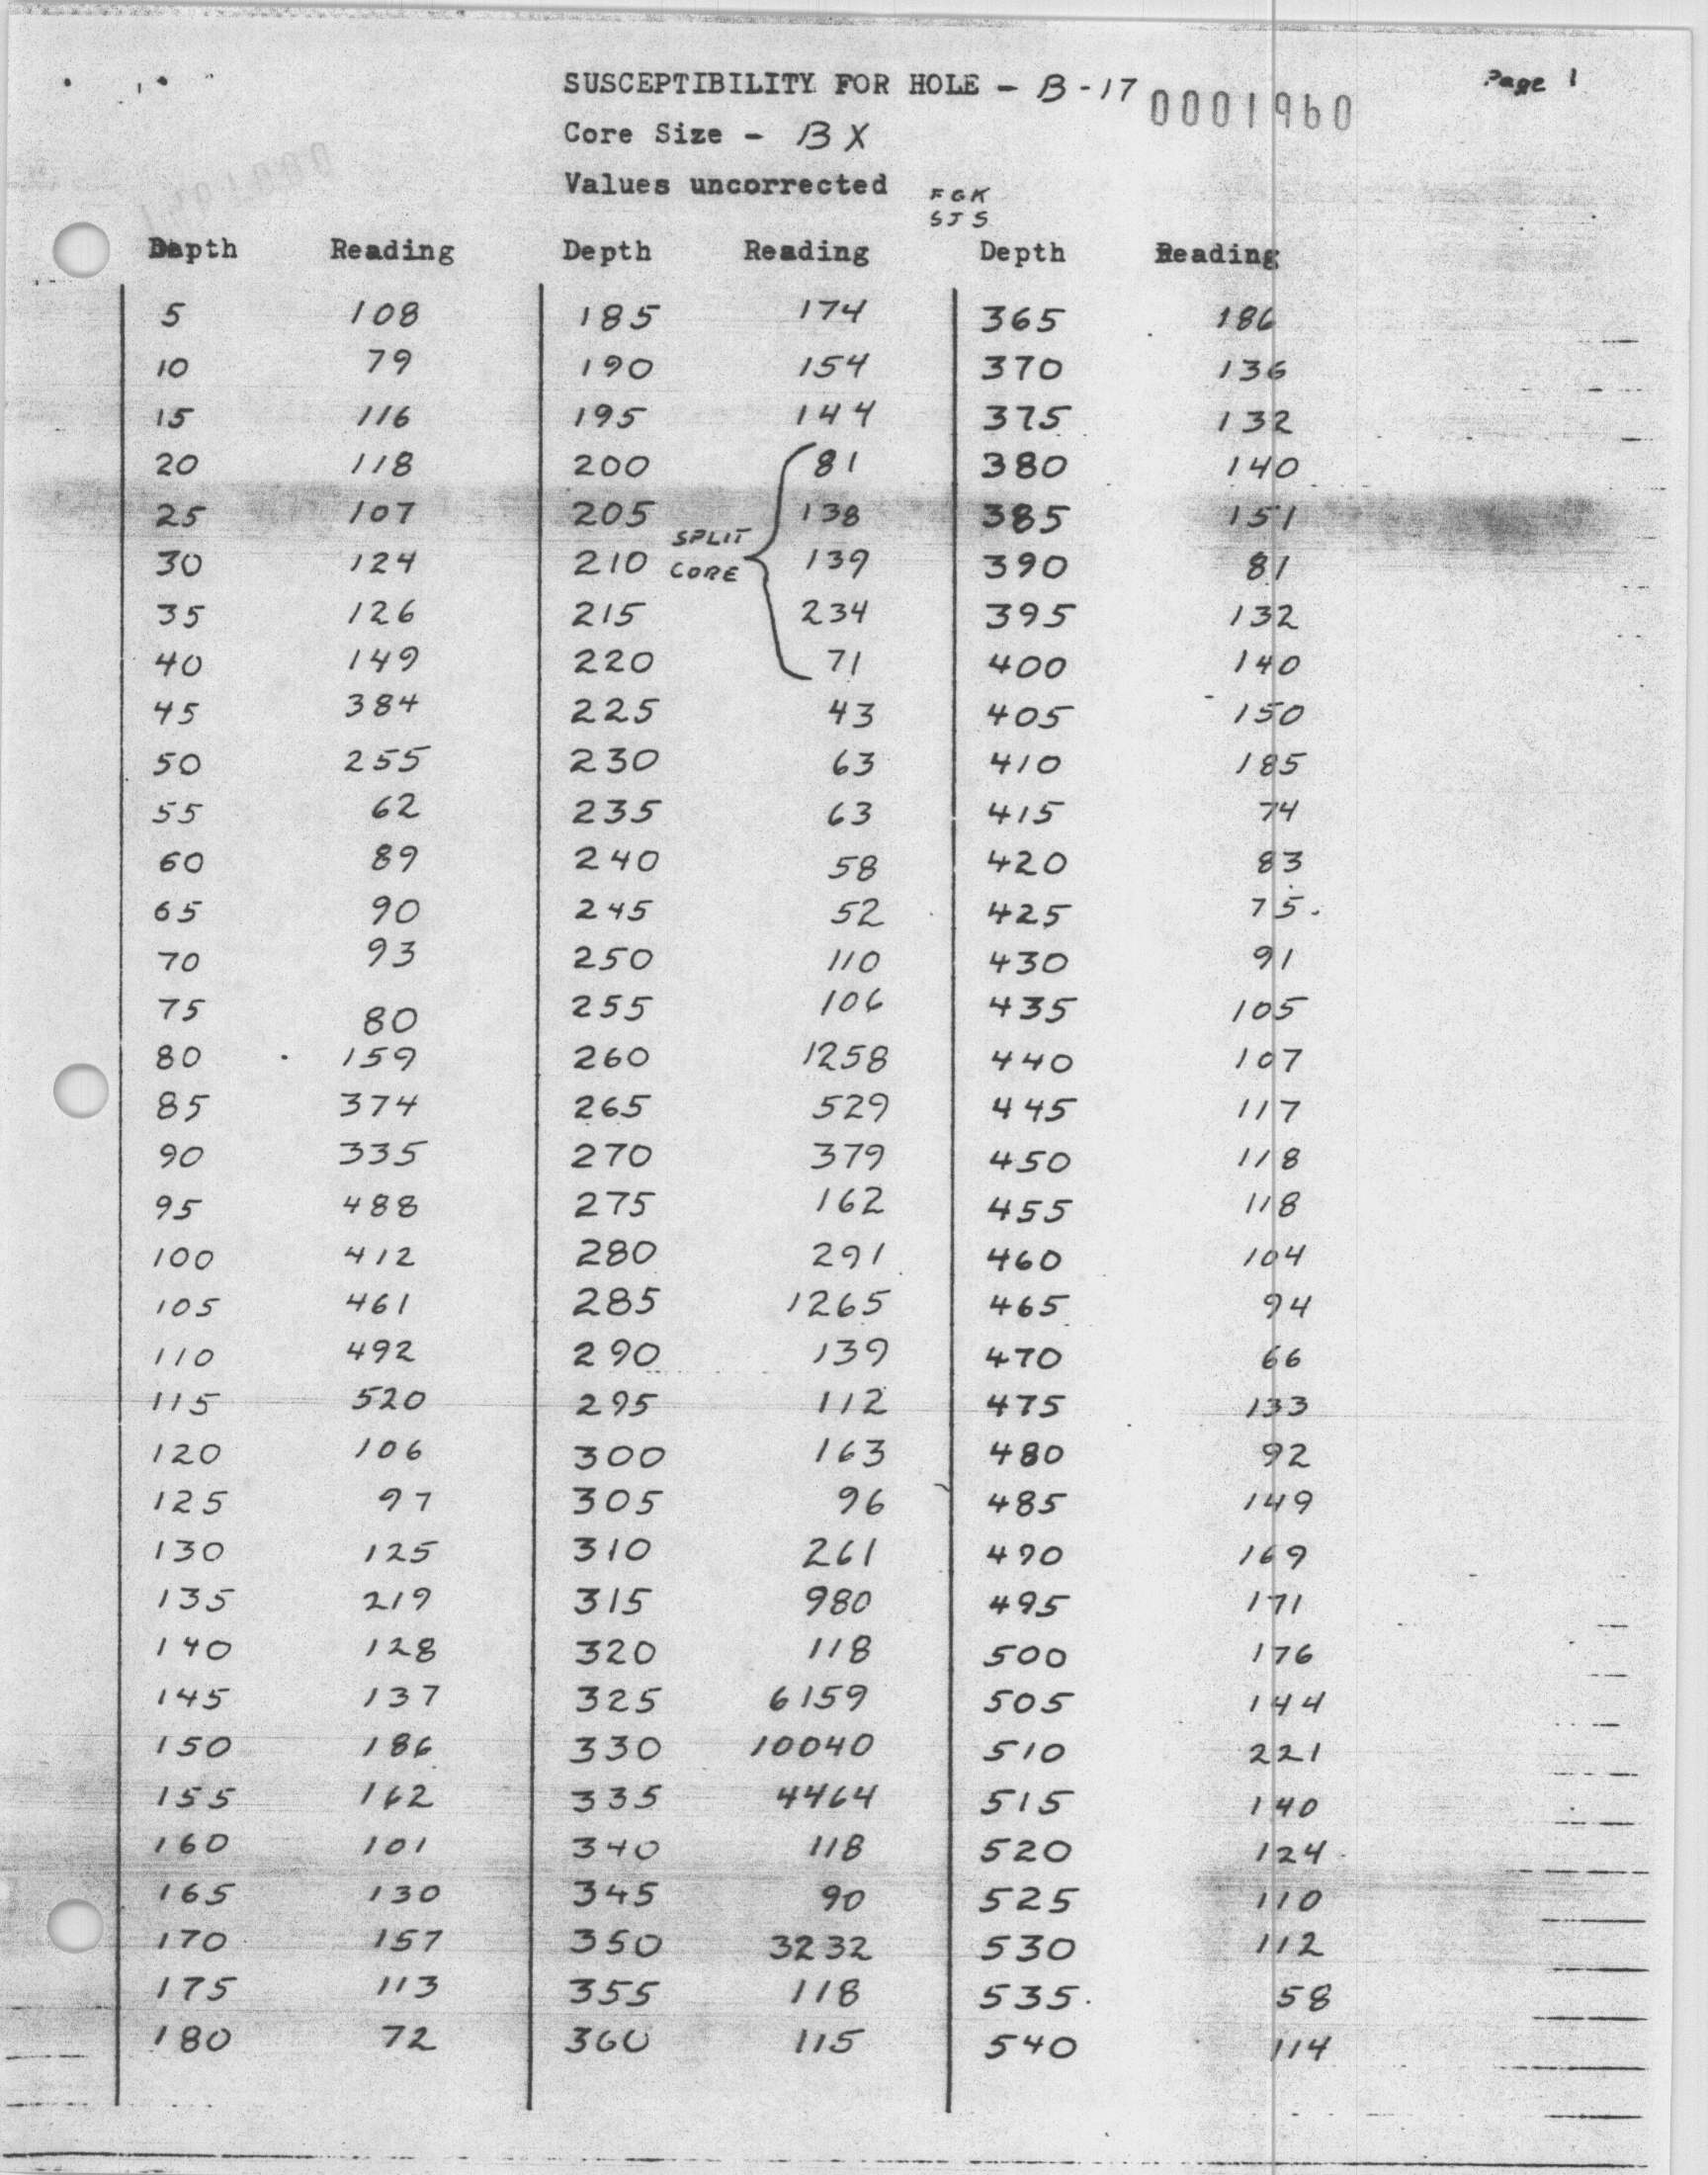 Page 1
SUSCEPTIBILITY FOR HOLE - B-17 0001960
Core Size - BX
Values uncorrected FGK
SJS
Depth Reading Depth Reading Depth Reading
5 108 185 174 365 186
10 79 190 154 370 136
15 116 195 144 375 132
20 118 200 81 380 140
25 107 205 138 385 151
SPLIT
30 124 210 139 390 81
CORE
35 126 215 234 395 132
40 149 220 71 400 140
45 384 225 43 405 150
50 255 230 63 410 185
55 62 235 63 415 74
60 89 240 58 420 83
65 90 245 52 425 75.
70 93 250 110 430 91
75 80 255 106 435 105
80 159 260 1258 440 107
85 374 265 529 445 117
90 335 270 379 450 118
95 488 275 162 455 118
100 412 280 291 460 104
105 461 285 1265 465 94
110 492 290 139 470 66
115 520 295 112 475 133
120 106 300 163 480 92
125 97 305 96 485 149
130 125 310 261 490 169
135 219 315 980 495 171
140 128 320 118 500 176
145 137 325 6159 505 144
150 186 330 10040 510 221
155 162 335 4464 515 140
160 101 340 118 520 124
165 130 345 90 525 110
170 157 350 3232 530 112
175 113 355 118 535 58
180 72 360 115 540 114